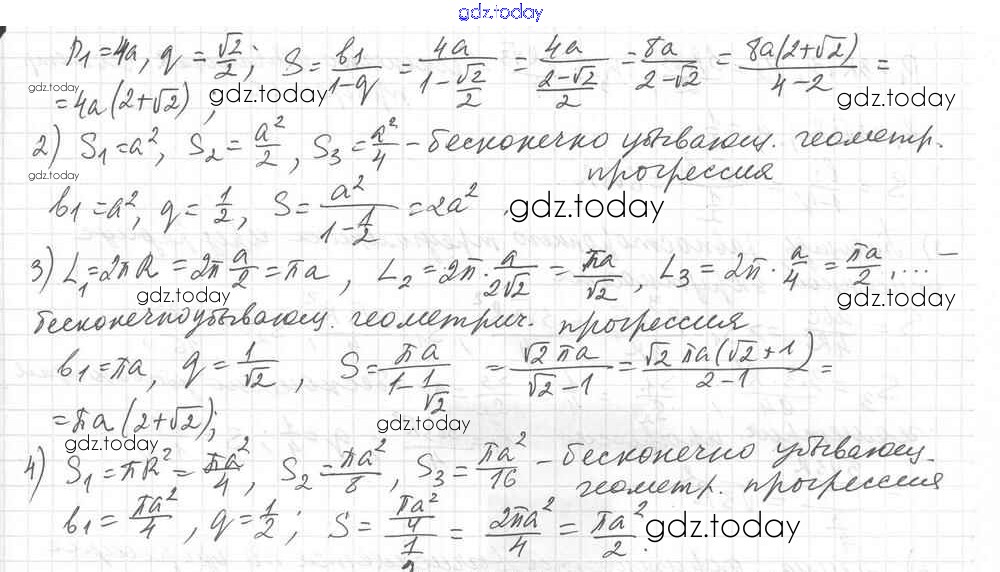 gdz.today
P₁ = 4a, q = √2/2; S = b₁/(1-q) = 4a/(1-√2/2) = 4a/((2-√2)/2) = 8a/(2-√2) = 8a(2+√2)/(4-2) =
gdz.today
= 4a(2+√2);
gdz.today
gdz.today
2) S₁ = a², S₂ = a²/2, S₃ = a²/4 - бесконечно убывающ. геометр.
gdz.today
прогрессия
b₁ = a², q = 1/2, S = a²/(1-1/2) = 2a².
gdz.today
3) L₁ = 2πR = 2π a/2 = πa, L₂ = 2π · a/(2√2) = πa/√2, L₃ = 2π · a/4 = πa/2, ... -
gdz.today
gdz.today
бесконечно убывающ. геометрич. прогрессия
b₁ = πa, q = 1/√2, S = πa/(1-1/√2) = √2πa/(√2-1) = √2πa(√2+1)/(2-1) =
gdz.today
= πa(2+√2);
gdz.today
4) S₁ = πR² = πa²/4, S₂ = πa²/8, S₃ = πa²/16 - бесконечно убывающ.
геометр. прогрессия
b₁ = πa²/4, q = 1/2; S = (πa²/4)/(1/2) = 2πa²/4 = πa²/2.
gdz.today